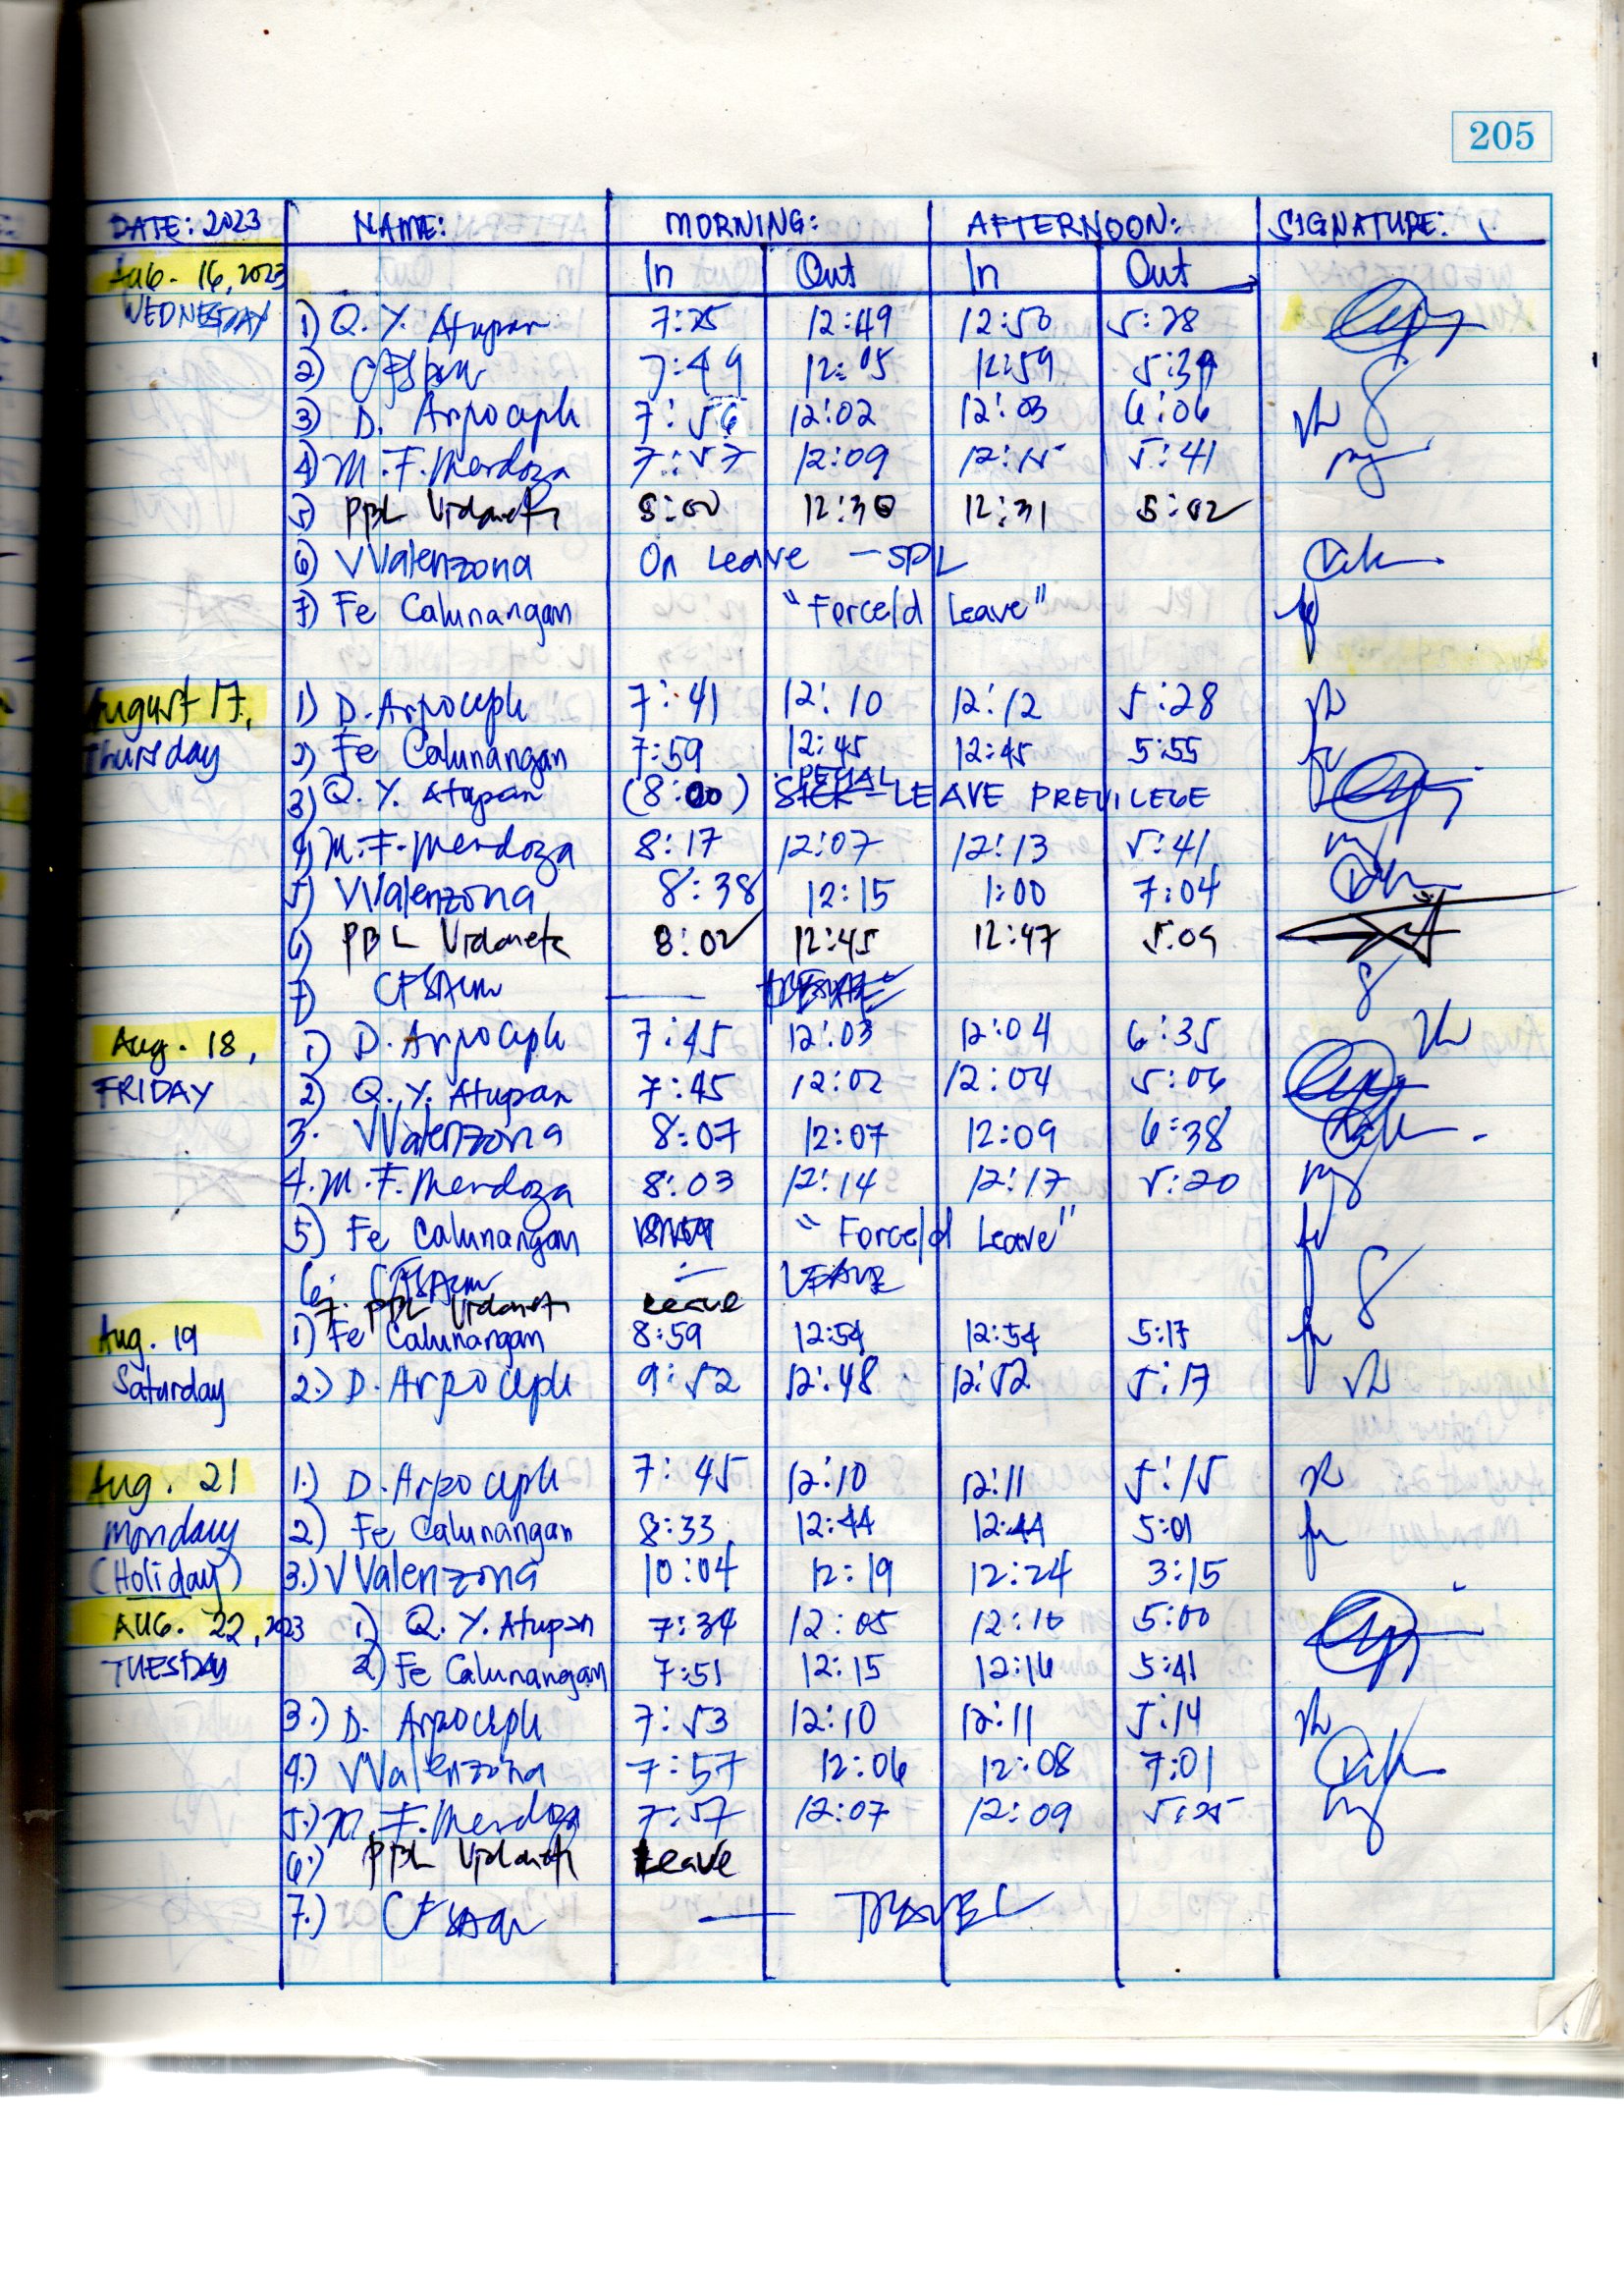 205
DATE: 2023 NAME: MORNING: AFTERNOON: SIGNATURE:
AUG. 16, 2023 In Out In Out
WEDNESDAY 1) Q. Y. Atupan 7:25 12:49 12:50 5:28
2) 7:49 12:05 12:59 5:39
3) D. 7:56 12:02 12:03 6:06
4) M. F. Mendoza 7:57 12:09 12:15 5:41
5) PBL 8:00 12:30 12:31 5:02
6) VValenzona On Leave - SPL
7) Fe Calunangan "Force/d Leave"
August 17, 1) D. 7:41 12:10 12:12 5:28
Thursday 2) Fe Calunangan 7:59 12:45 12:45 5:55
3) Q. Y. Atupan (8:00) SPECIAL LEAVE PREVILEGE
4) M. F. Mendoza 8:17 12:07 12:13 5:41
5) VValenzona 8:38 12:15 1:00 7:04
6) PBL 8:02 12:45 12:47 5:09
7)
Aug. 18, 1) D. 7:45 12:03 12:04 6:35
FRIDAY 2) Q. Y. Atupan 7:45 12:02 12:04 5:06
3. VValenzona 8:07 12:07 12:09 6:38
4. M. F. Mendoza 8:03 12:14 12:17 5:20
5) Fe Calunangan "Force/d Leave"
6. LEAVE
7. PBL Leave
Aug. 19 1) Fe Calunangan 8:59 12:54 12:54 5:17
Saturday 2.) D. 9:52 12:48 12:52 5:17
Aug. 21 1.) D. 7:45 12:10 12:11 5:15
Monday 2) Fe Calunangan 8:33 12:44 12:44 5:01
(Holiday) 3.) VValenzona 10:04 12:19 12:24 3:15
AUG. 22, 2023 1) Q. Y. Atupan 7:34 12:05 12:10 5:00
TUESDAY 2) Fe Calunangan 7:51 12:15 12:16 5:41
3.) D. 7:53 12:10 12:11 5:14
4.) VValenzona 7:57 12:06 12:08 7:01
5.) M. F. Mendoza 7:57 12:07 12:09 5:25
6.) PBL Leave
7.) TRAVEL